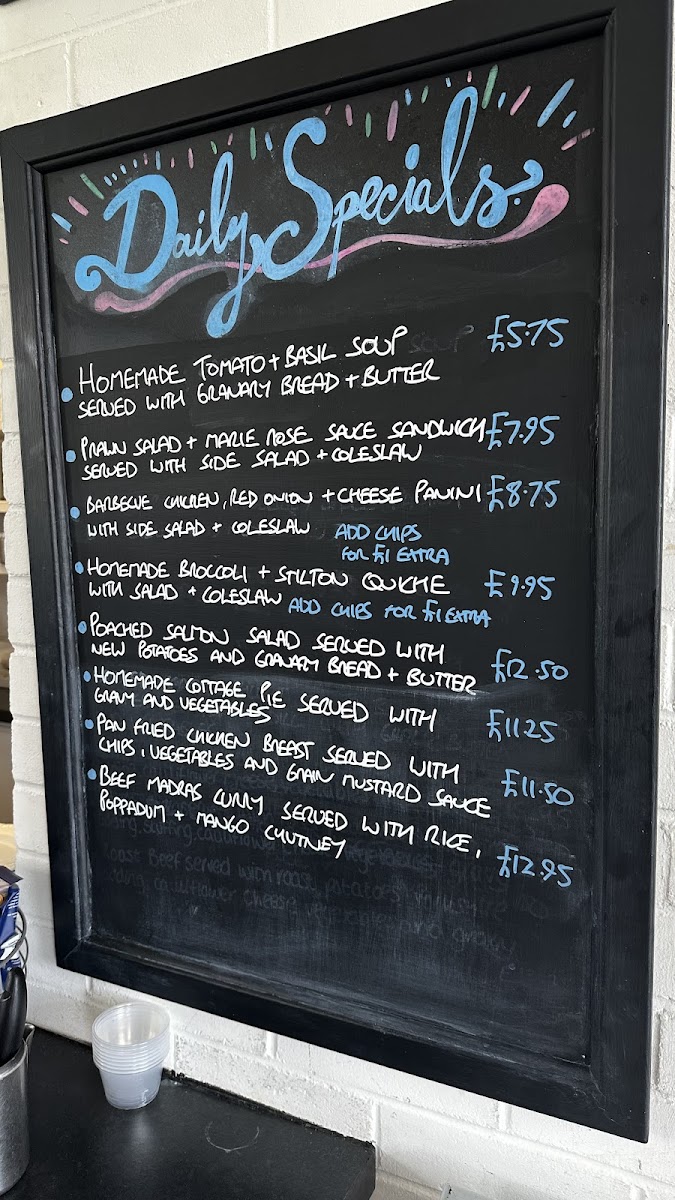 Daily Specials?
HOMEMADE TOMATO + BASIL SOUP £5.75
SERVED WITH GRANARY BREAD + BUTTER
PRAWN SALAD + MARIE ROSE SAUCE SANDWICH £7.95
SERVED WITH SIDE SALAD + COLESLAW
BARBECUE CHICKEN, RED ONION + CHEESE PANINI £8.75
WITH SIDE SALAD + COLESLAW ADD CHIPS
FOR £1 EXTRA
HOMEMADE BROCCOLI + STILTON QUICHE £9.95
WITH SALAD + COLESLAW ADD CHIPS FOR £1 EXTRA
POACHED SALMON SALAD SERVED WITH
NEW POTATOES AND GRANARY BREAD + BUTTER £12.50
HOMEMADE COTTAGE PIE SERVED WITH
GRAVY AND VEGETABLES £11.25
PAN FRIED CHICKEN BREAST SERVED WITH
CHIPS, VEGETABLES AND GRAIN MUSTARD SAUCE £11.50
BEEF MADRAS CURRY SERVED WITH RICE,
POPPADUM + MANGO CHUTNEY £12.95
Roast Beef served with roast potatoes
cauliflower cheese, vegetables and gravy